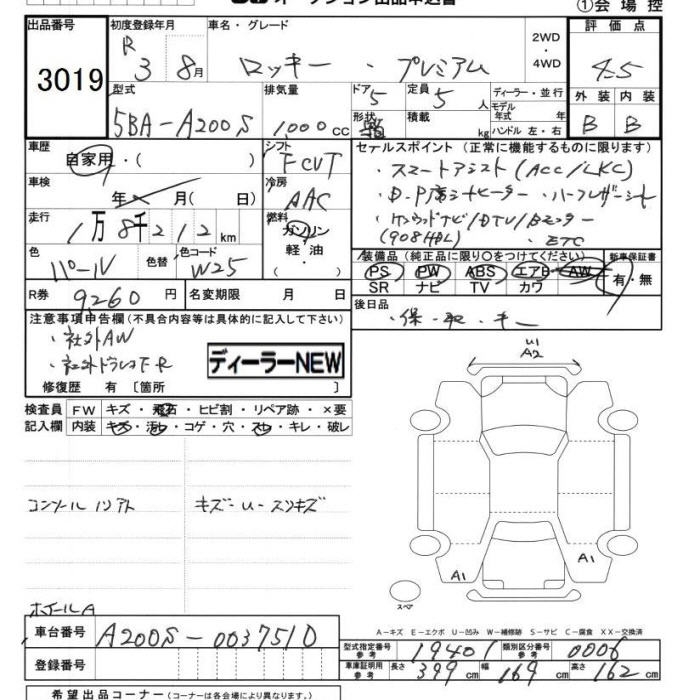 ①会場控
出品番号 3019
初度登録年月 R 3 8月
車名・グレード ロッキー ・ プレミアム
2WD ・4WD
評価点 4.5
型式 5BA-A200S
排気量 1000cc
ドア 5
定員 5人
形状
積載 kg
ディーラー・並行
モデル年式 年
ハンドル 左・右
外装 内装
B B
車歴 自家用・( )
シフト FCVT
セールスポイント (正常に機能するものに限ります)
・スマートアシスト(ACC/LKC)
・D.P席シートヒーター ・ハーフレザーシート
・ケンウッドナビ/DTV/Bモニター
(908HDL) ・ETC
車検 年 月( 日)
冷房 AAC
走行 1万8千212km
燃料 ガソリン
軽油
( )
色 パールV
色替
色コード W25
装備品 (純正品に限り○をつけてください)
PS PW ABS エアB AW
SR ナビ TV カワ
新車保証書
有・無
R券 9260円
名変期限 月 日
後日品
・保・取・キー
注意事項申告欄(不具合内容等は具体的に記入して下さい)
・社外AW
・社外ドラレコF・R
ディーラーNEW
修復歴 有 〔箇所 〕
U1
A2
検査員 FW キズ・飛石・ヒビ割・リペア跡・×要
記入欄 内装 キズ・汚れ・コゲ・穴・スレ・キレ・破レ
コンソール リアト キズ-U-スリキズ
A1
A1
ホイールA
スペア
A-キズ E-エクボ U-凹み W-補修跡 S-サビ C-腐食 XX-交換済
車台番号 A200S-0037510
型式指定番号 参考 19401
類別区分番号 参考 0006
登録番号
車庫証明用 参考 長さ 399cm 幅 169cm 高さ 162cm
希望出品コーナー(コーナーは各会場により異なります。)